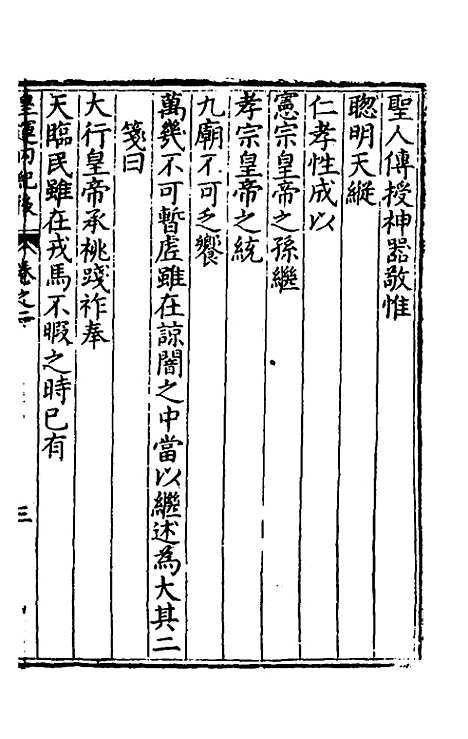 聖人傳授神器敬惟
聰明天縱
仁孝性成以
憲宗皇帝之孫繼
孝宗皇帝之統
九廟不可乏饗
萬幾不可暫虛雖在諒闇之中當以繼述為大其二
箋曰
大行皇帝承祧踐祚奉
天臨民雖在戎馬不暇之時已有
卷之二
三